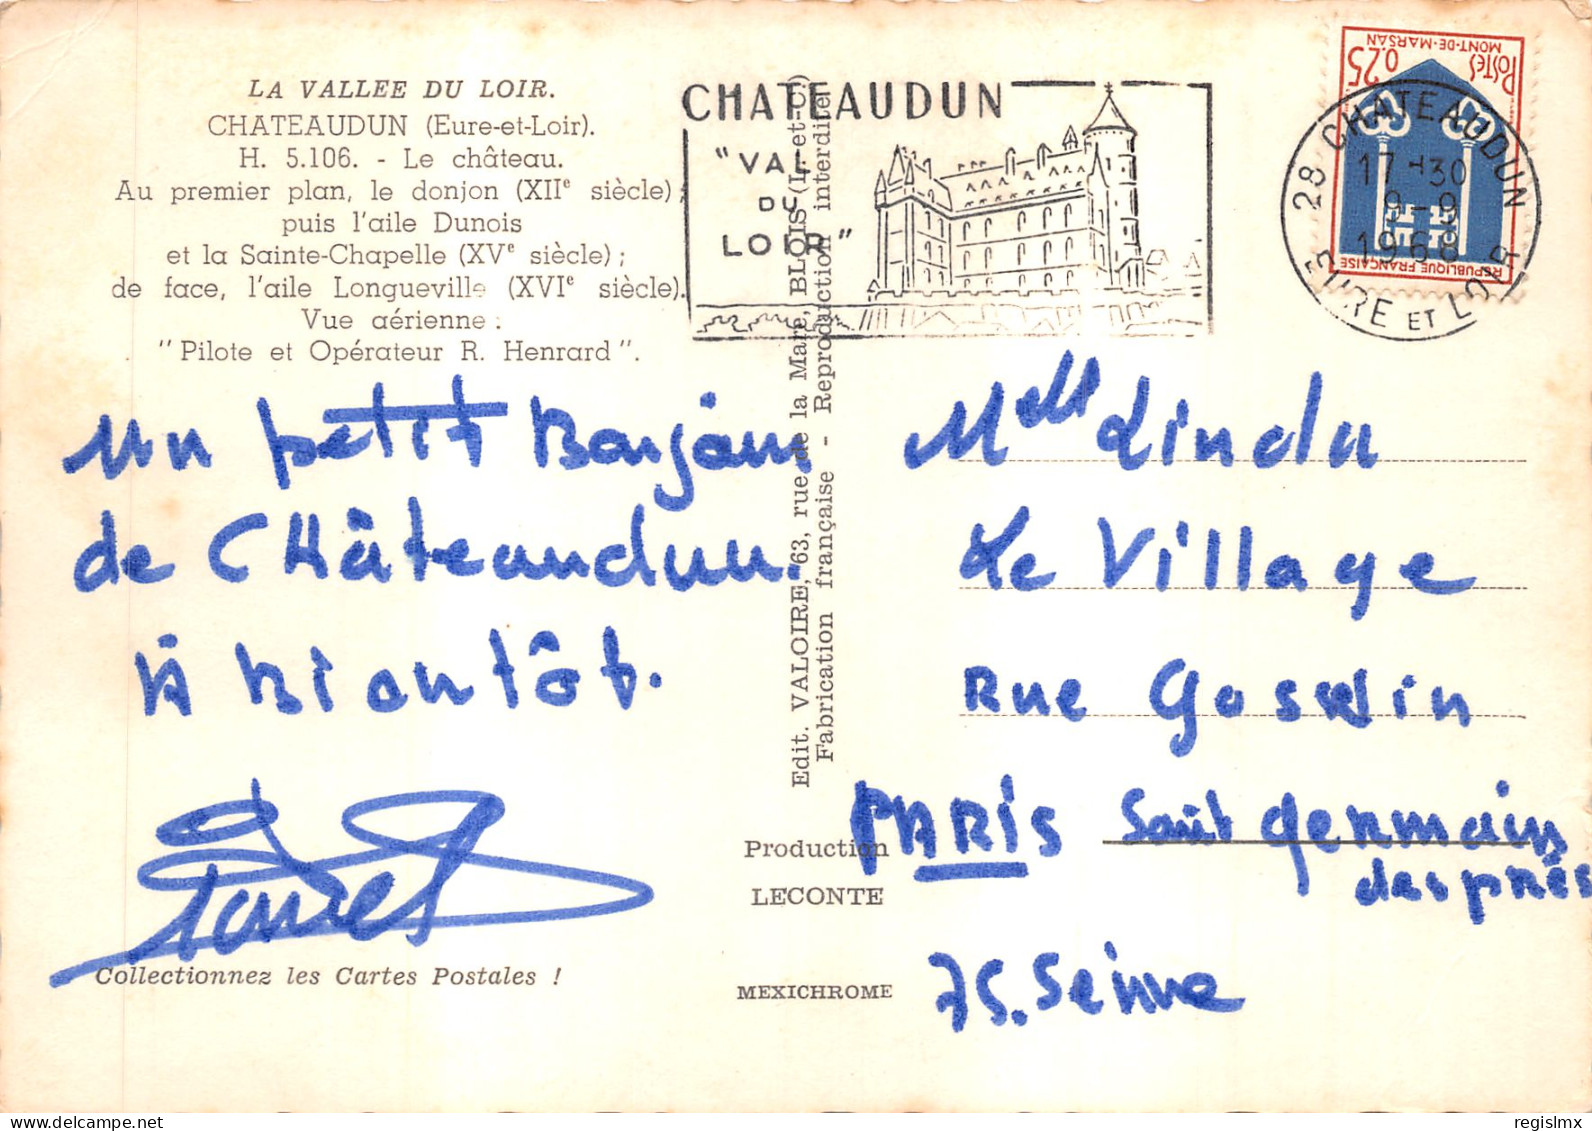 LA VALLEE DU LOIR.
CHATEAUDUN (Eure-et-Loir).
H. 5.106. - Le château.
Au premier plan, le donjon (XIIe siècle);
puis l'aile Dunois
et la Sainte-Chapelle (XVe siècle);
de face, l'aile Longueville (XVIe siècle).
Vue aérienne :
"Pilote et Opérateur R. Henrard".
CHATEAUDUN
"VAL
DU
LOIR"
POSTES 0,25
MONT-DE-MARSAN
REPUBLIQUE FRANÇAISE
28 CHATEAUDUN
17 H 30
9 - 9
1968
EURE ET LOIR
un petit Bonjour
de CHâteaudun.
à bientôt.
Collectionnez les Cartes Postales !
Edit. VALOIRE, 63, rue de la Mare, BLOIS (L.-et-C.)
Fabrication française - Reproduction interdite
Production
LECONTE
MEXICHROME
Melle Linda
Le Village
Rue Gosslin
PARIS Saint germain
des près
75. Seine
regislmx